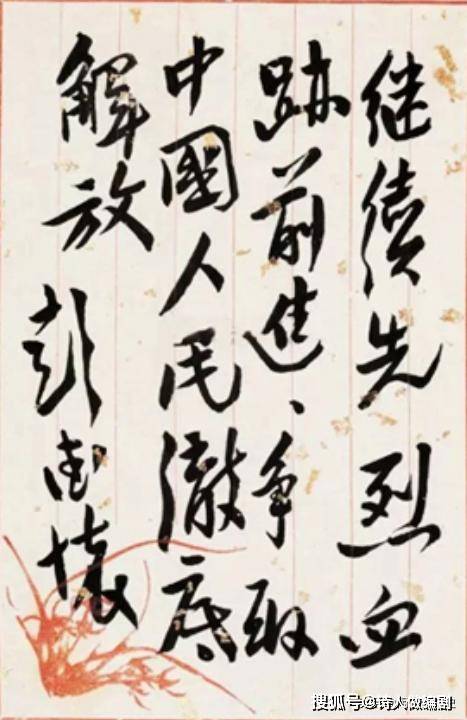 继续先烈血
跡前進、争取
中國人民徹底
解放 彭德懷
搜狐号@诗人做编剧